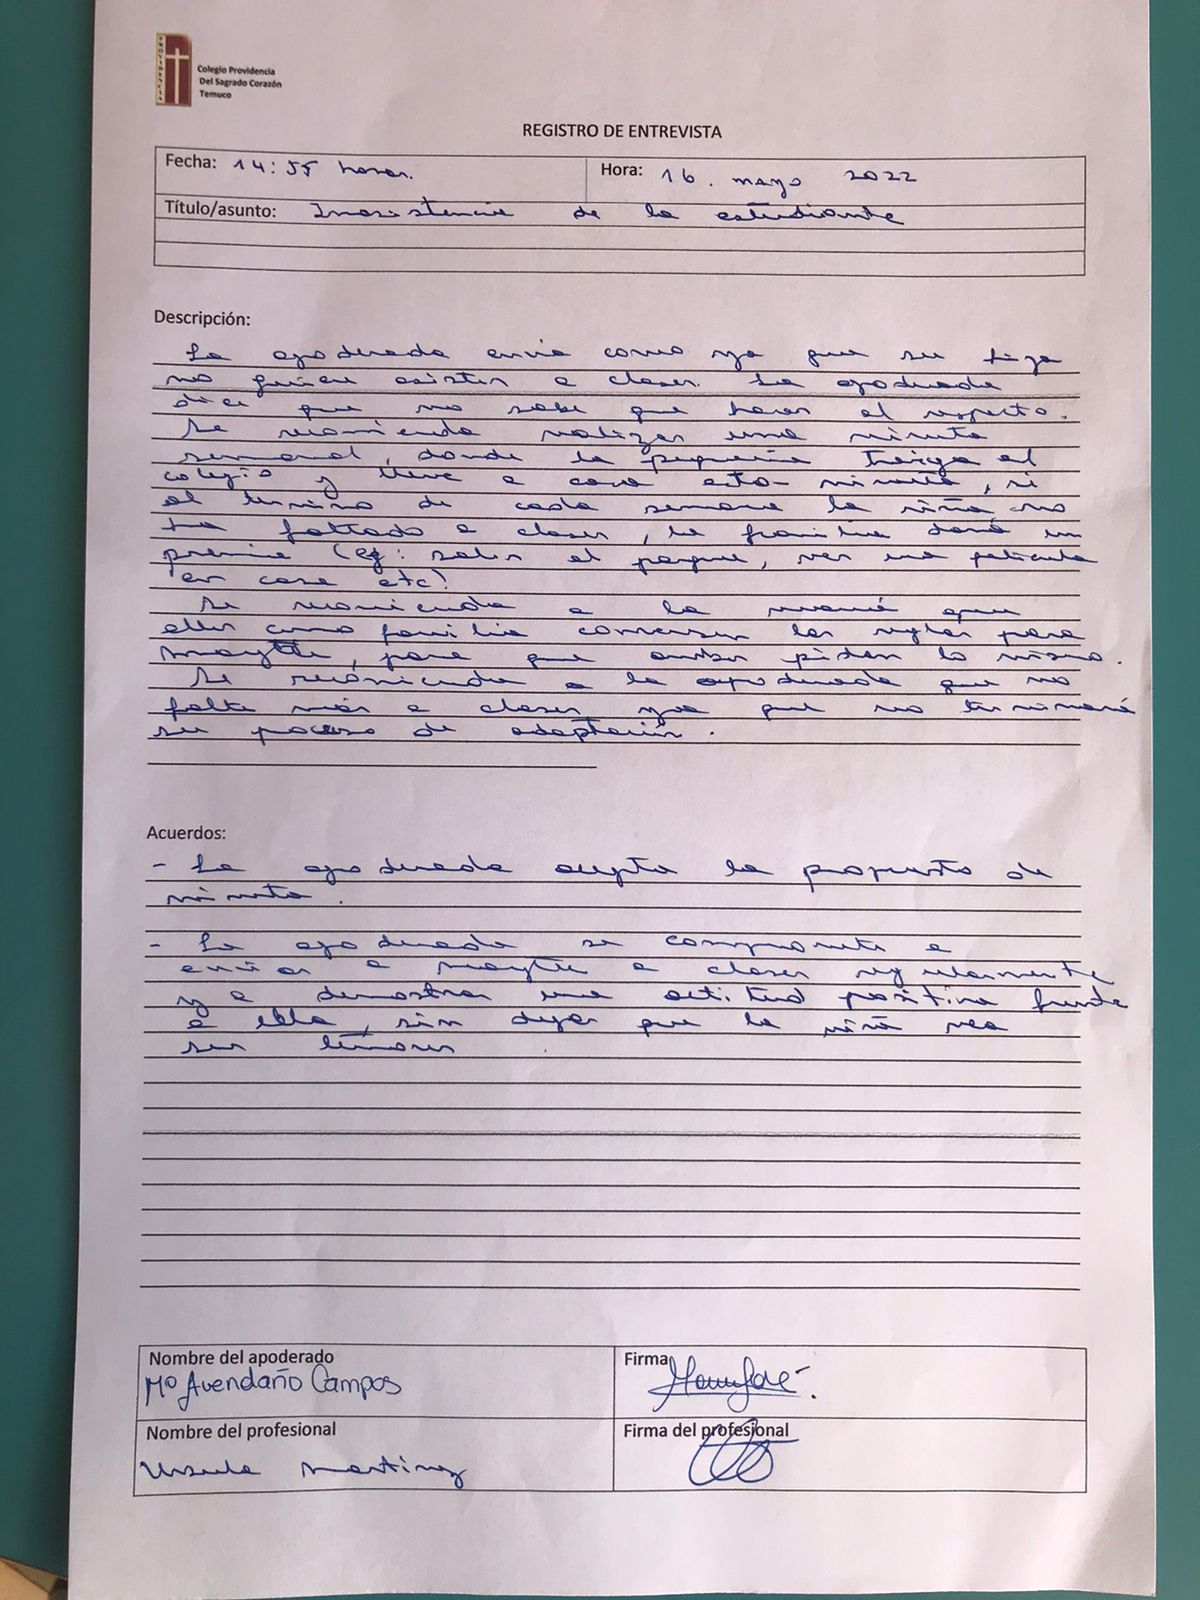 PROVIDENCIA
Colegio Providencia
Del Sagrado Corazón
Temuco
REGISTRO DE ENTREVISTA
Fecha: 14:55 horas.
Hora: 16. mayo 2022
Título/asunto: Inasistencia de la estudiante
Descripción:
La apoderada envía correo ya que su hija
no quiere asistir a clases. La apoderada
dice que no sabe que hacer al respecto.
Se recomienda realizar una minuta
semanal, donde la pequeña traiga al
colegio y lleve a casa esta minuta, si
al termino de cada semana la niña no
ha faltado a clases, la familia dará un
premio (ej: salir al parque, ver una película
en casa etc)
Se recomienda a la mamá que
ellos como familia conversen las reglas para
Maytte, para que ambos pidan lo mismo.
Se recomienda a la apoderada que no
falte más a clases ya que no terminará
su proceso de adaptación.
Acuerdos:
- La apoderada acepta la propuesta de
minuta.
- La apoderada se compromete a
enviar a Maytte a clases regularmente
y a demostrar una actitud positiva frente
a ella, sin dejar que la niña vea
sus temores
Nombre del apoderado
Mª Avendaño Campos
Firma
Nombre del profesional
Ursula Martinez
Firma del profesional